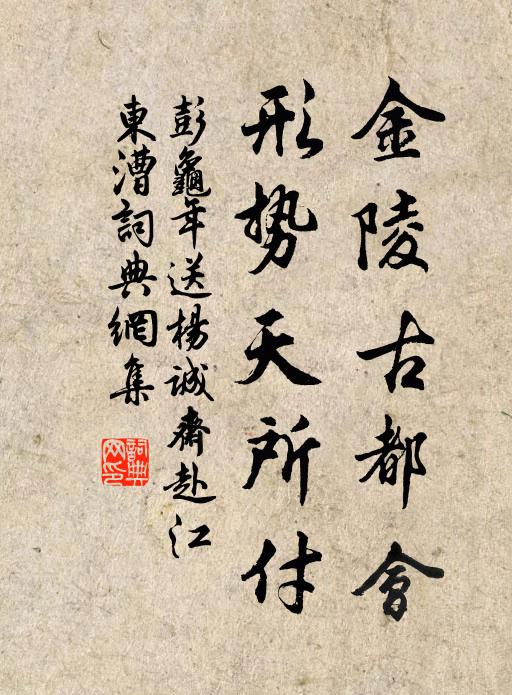 金陵古都會
形势天所付
彭龜年送楊誠齋赴江
東漕詞典網集
詞典网印